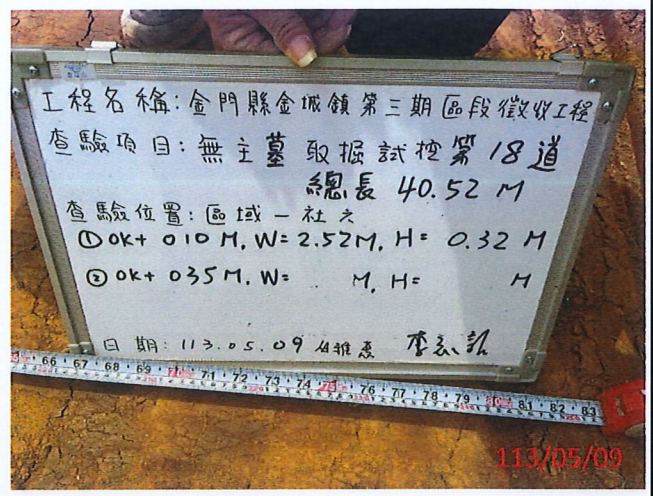 工程名稱:金門縣金城鎮第三期區段徵收工程
查驗項目:無主墓取掘試挖第18道
總長 40.52 M
查驗位置:區域一社六
①0K+010M, W=2.52M, H=0.32 M
②0K+035M, W= M, H= M
日期:113.05.09
66 67 68 69 70 71 72 73 74 75 76 77 78 79 80 81 82 83
113/05/09